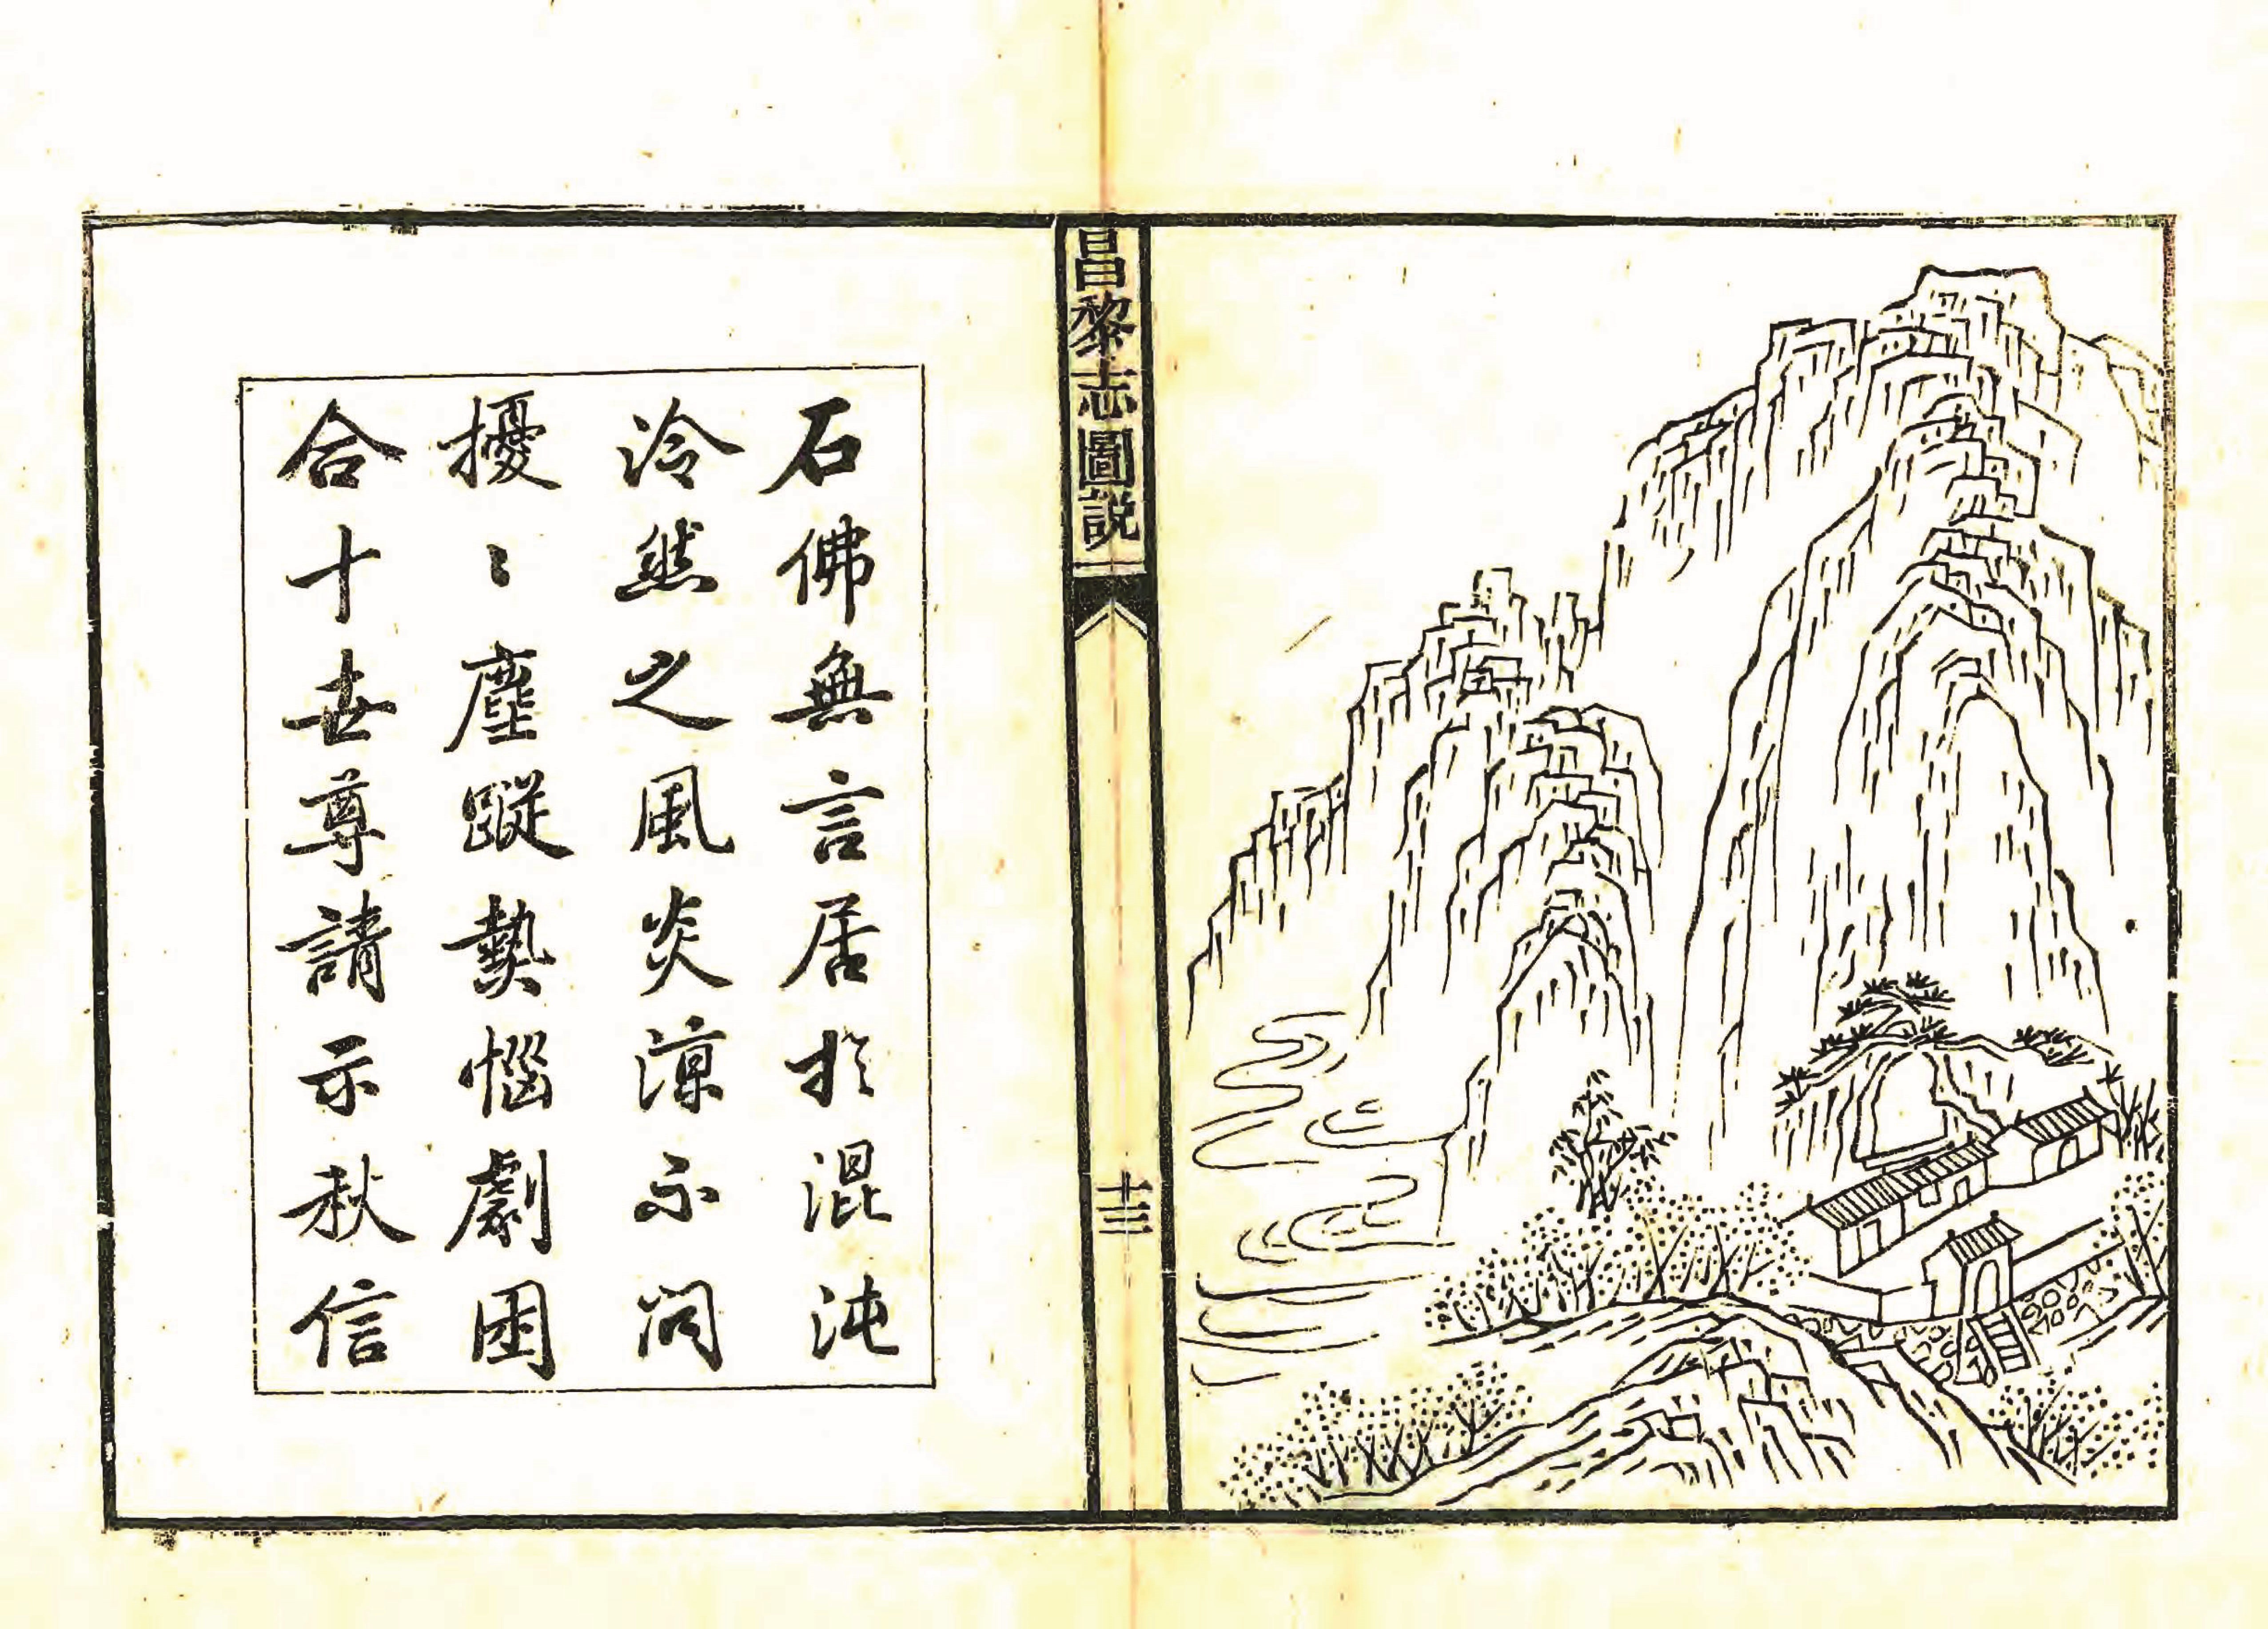 昌黎志圖説
十三
石佛無言居扵混沌
泠然之風炎涼不問
擾〻塵蹤熱惱劇困
合十世尊請示秋信